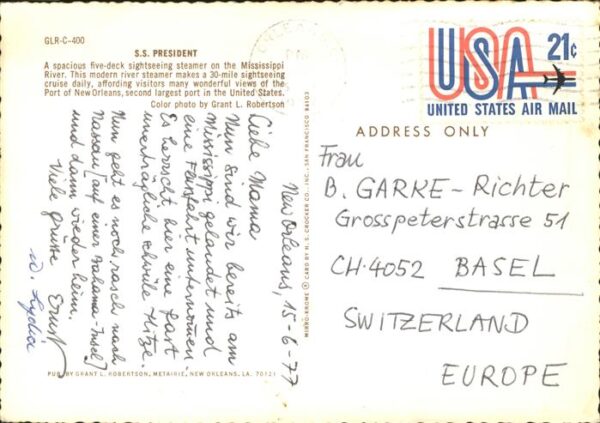 GLR-C-400
S.S. PRESIDENT
A spacious five-deck sightseeing steamer on the Mississippi
River. This modern river steamer makes a 30-mile sightseeing
cruise daily, affording visitors many wonderful views of the
Port of New Orleans, second largest port in the United States.
Color photo by Grant L. Robertson
New Orleans, 15-6-77
Liebe Mama
Nun sind wir bereits am
Mississippi gelandet und
eine Flussfahrt unternommen.
Es herrscht hier eine fast
unerträgliche schwüle Hitze.
Nun geht es noch rasch nach
Nassau (auf einer Bahama-Insel)
und dann wieder heim.
Viele Grüsse Ernst
u. Lydia
PUB. BY GRANT L. ROBERTSON, METAIRIE, NEW ORLEANS, LA. 70121
MIRRO-KROME ® CARD BY H. S. CROCKER CO., INC., SAN FRANCISCO 94103
USA 21c
UNITED STATES AIR MAIL
ADDRESS ONLY
Frau
B. GARKE-Richter
Grosspeterstrasse 51
CH-4052 BASEL
SWITZERLAND
EUROPE